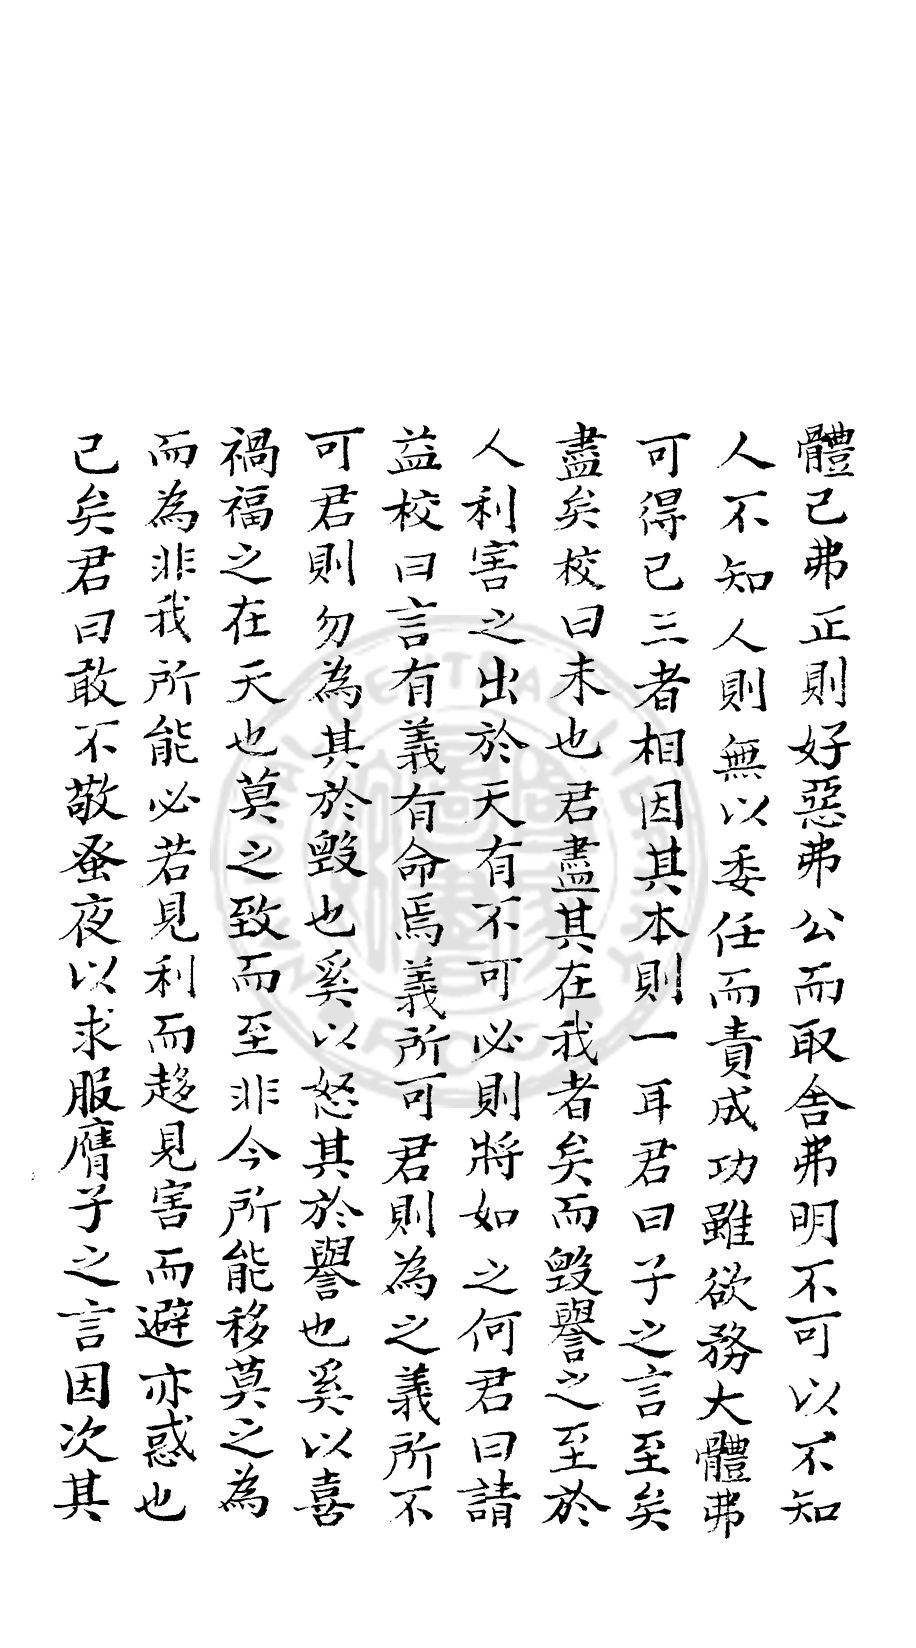 體己弗正則好惡弗公而取舍弗明不可以不知
人不知人則無以委任而責成功雖欲務大體弗
可得已三者相因其本則一耳君曰子之言至矣
盡矣校曰未也君盡其在我者矣而毀譽之至於
人利害之出於天有不可必則將如之何君曰請
益校曰言有義有命焉義所可君則為之義所不
可君則勿為其於毀也奚以怒其於譽也奚以喜
禍福之在天也莫之致而至非今所能移莫之為
而為非我所能必若見利而趍見害而避亦惑也
已矣君曰敢不敬蚤夜以求服膺子之言因次其